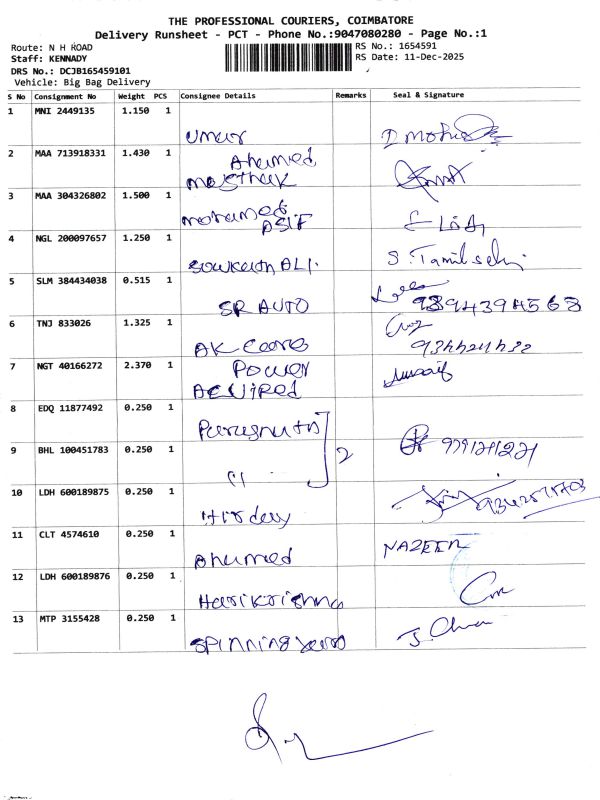 THE PROFESSIONAL COURIERS, COIMBATORE
Delivery Runsheet - PCT - Phone No.:9047080280 - Page No.:1
Route: N H ROAD
RS No.: 1654591
Staff: KENNADY
RS Date: 11-Dec-2025
DRS No.: DCJB165459101
Vehicle: Big Bag Delivery
S No Consignment No Weight PCS Consignee Details Remarks Seal & Signature
1 MNI 2449135 1.150 1
umar
2 MAA 713918331 1.430 1
Ahamed
3 MAA 304326802 1.500 1
mohamed
ASIF
4 NGL 200097657 1.250 1 S. Tamil selvi
sowkath ALI.
5 SLM 384434038 0.515 1
SR AUTO
6 TNJ 833026 1.325 1
AK
7 NGT 40166272 2.370 1 Power
8 EDQ 11877492 0.250 1
9 BHL 100451783 0.250 1 2
10 LDH 600189875 0.250 1
Hirday
11 CLT 4574610 0.250 1 NAZEER
Ahamed
12 LDH 600189876 0.250 1
Harikrishna
13 MTP 3155428 0.250 1
spinning